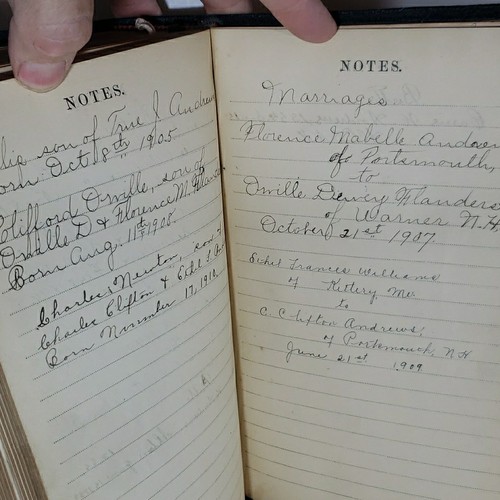 NOTES.
son of True J. Andrew
Born Oct 8th 1905
Clifford Orville, son of
Orville D & Florence M. Flanders
Born Aug. 11th 1908.
Charles Newton, son of
Charles Clifton & Ethel F.
Born November 17, 1910.
NOTES.
Marriages
Florence Mabelle Andrew
of Portsmouth,
to
Orville Dewey Flanders
of Warner N.H.
October 21st 1907.
Ethel Frances Williams
of Kittery Me.
to
C. Clifton Andrews,
of Portsmouth, N.H.
June 21st 1909